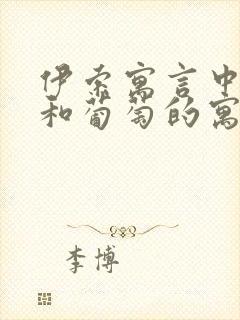 伊索寓言中
和葡萄的寓
李博